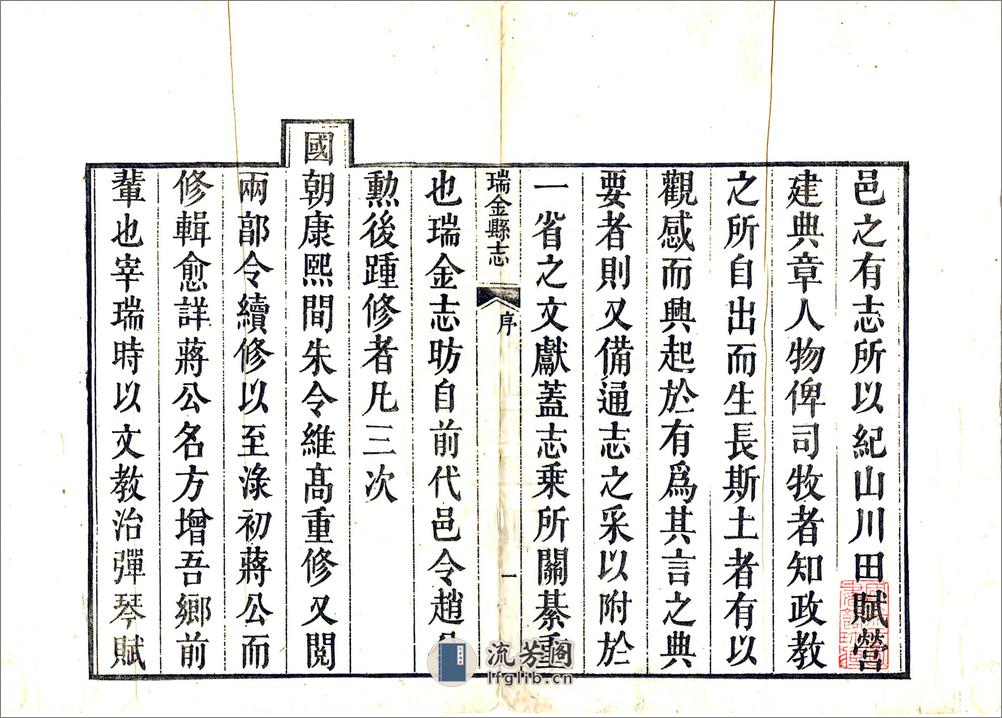 邑之有志所以紀山川田賦營
建典章人物俾司牧者知政教
之所自出而生長斯土者有以
觀感而興起於有爲其言之典
要者則又備通志之采以附於
一省之文獻蓋志乘所關綦重
瑞金縣志 序 一
也瑞金志昉自前代邑令趙公
勲後踵修者凡三次
國朝康熙間朱令維高重修又閱
兩郭令續修以至淥初蔣公而
修輯愈詳蔣公名方增吾鄉前
輩也宰瑞時以文教治彈琴賦
流芳阁
lfglib.cn